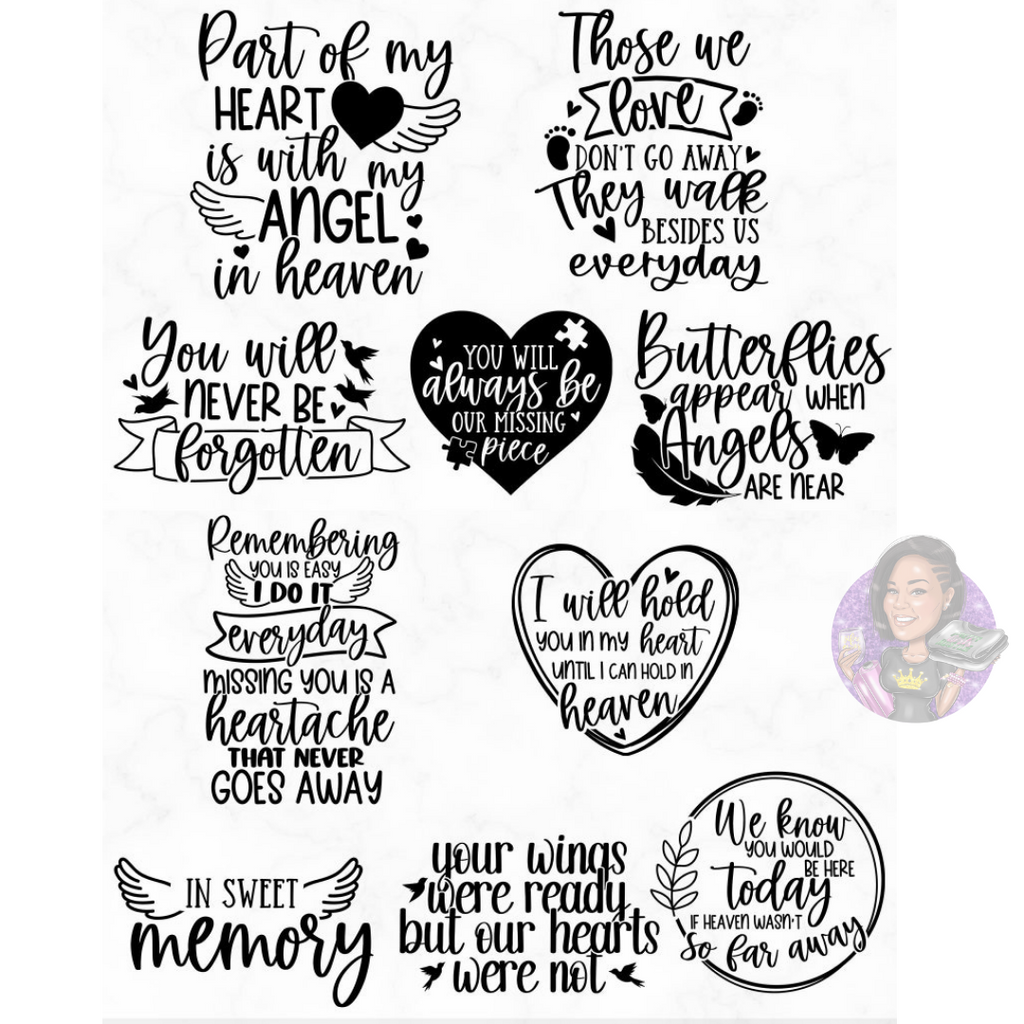 Part of my
HEART
is with my
ANGEL
in heaven
Those we
love
DON'T GO AWAY
They walk
BESIDES US
everyday
You will
NEVER BE
forgotten
YOU WILL
always be
OUR MISSING
piece
Butterflies
appear WHEN
Angels
ARE NEAR
Remembering
YOU IS EASY
I DO IT
everyday
MISSING YOU IS A
heartache
THAT NEVER
GOES AWAY
I will hold
YOU IN MY heart
UNTIL I CAN HOLD IN
heaven
IN SWEET
memory
your wings
were ready
but our hearts
were not
We know
YOU WOULD
BE HERE
today
IF HEAVEN WASN'T
so far away